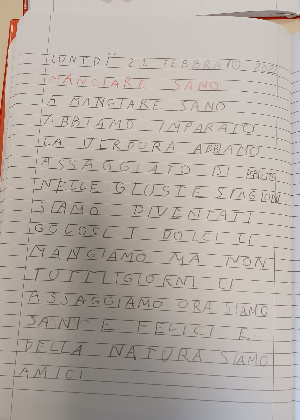 LUNEDÌ 21 FEBBRAIO
MANGIARE SANO
A MANGIARE SANO
ABBIAMO IMPARATO
LA VERDURA ABBIAMO
ASSAGGIATO DI
NELLE GIOSTRE
SIAMO DIVENTATI
GOLOSI I DOLCI LI
MANGIAMO MA NON
TUTTI I GIORNI LI
ASSAGGIAMO ORA SIAMO
SANI E FELICI E
DELLA NATURA SIAMO
AMICI